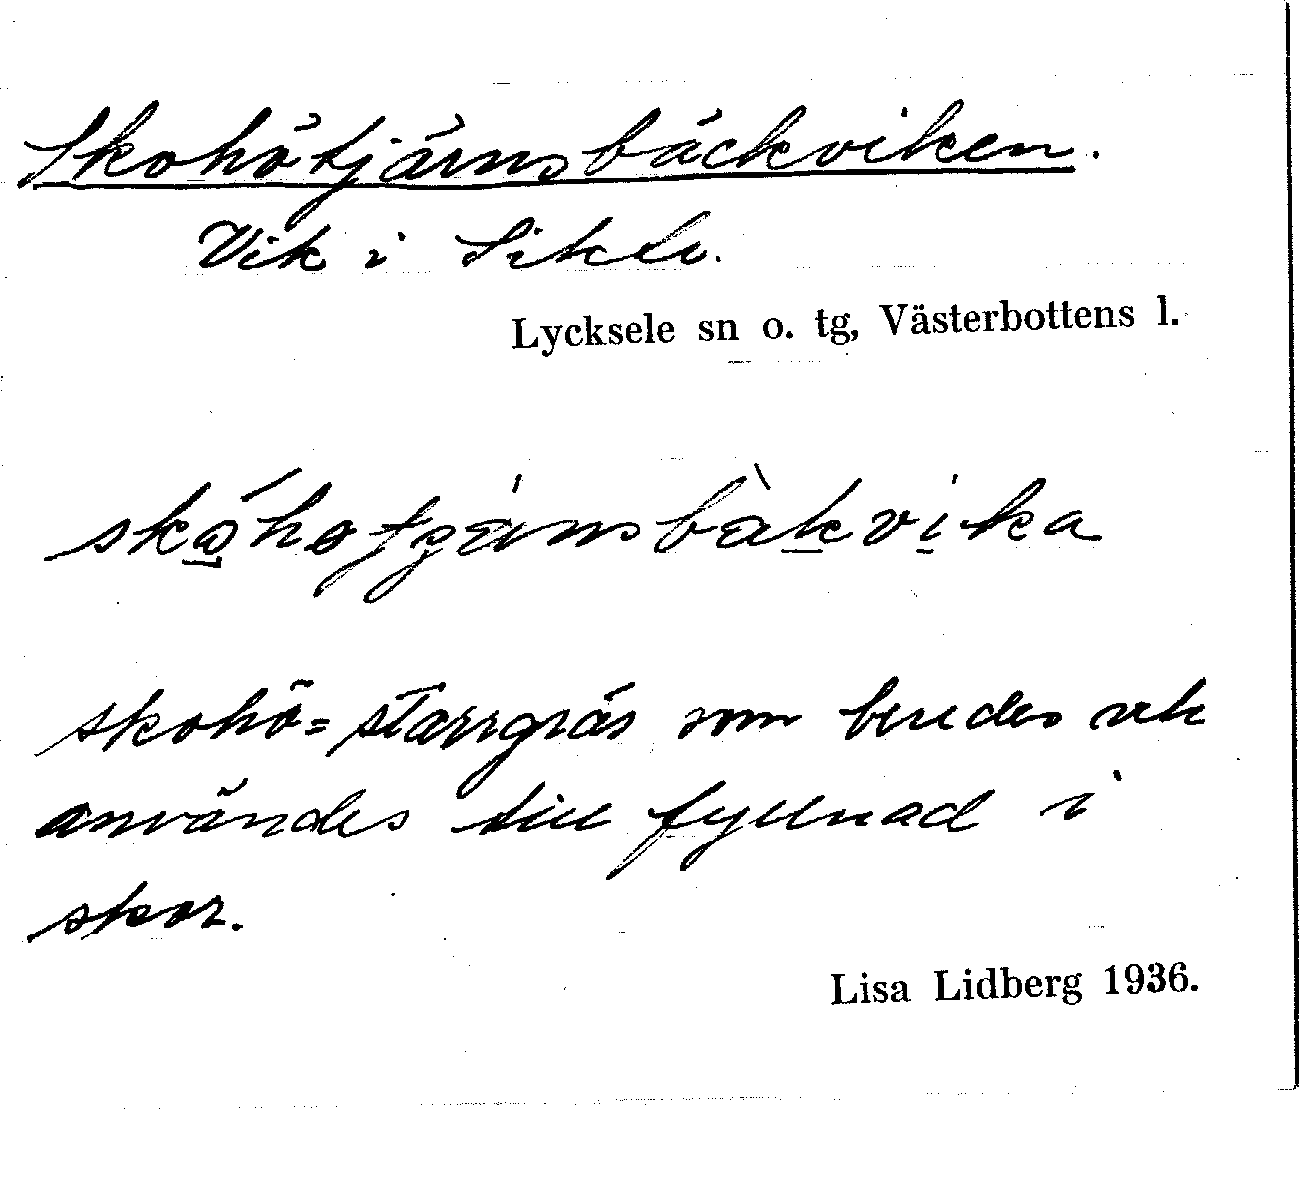 Skohötjärnsbäckviken.
Vik i Siksele.
Lycksele sn o. tg, Västerbottens l.
skohö = starrgräs som beredes och
användes till fyllnad i
skor.
Lisa Lidberg 1936.